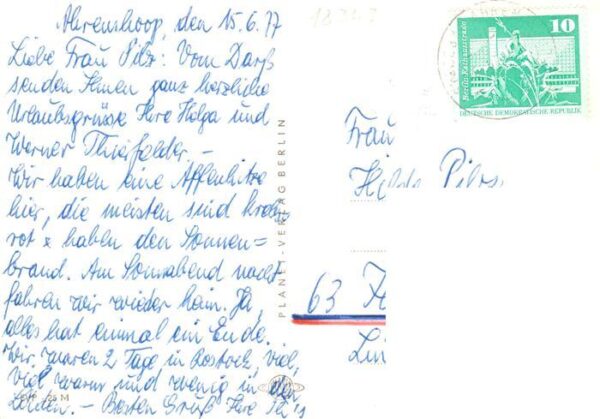 Ahrenshoop, den 15.6.77
Liebe Frau Pilz: Vom Darß
senden Ihnen ganz herzliche
Urlaubsgrüsse Ihre Helga und
Werner Thielfelder –
Wir haben eine Affenhitze
hier, die meisten sind krebs
rot & haben den Sonnen=
brand. Am Sonnabend nacht
fahren wir wieder heim. Ja,
alles hat einmal ein Ende.
Wir waren 2 Tage in Rostock, viel,
viel warm und wenig in den
Läden. – Besten Gruß Ihre
PLANET-VERLAG BERLIN
10
Berlin, Rathausstraße
DEUTSCHE DEMOKRATISCHE REPUBLIK
Frau
63